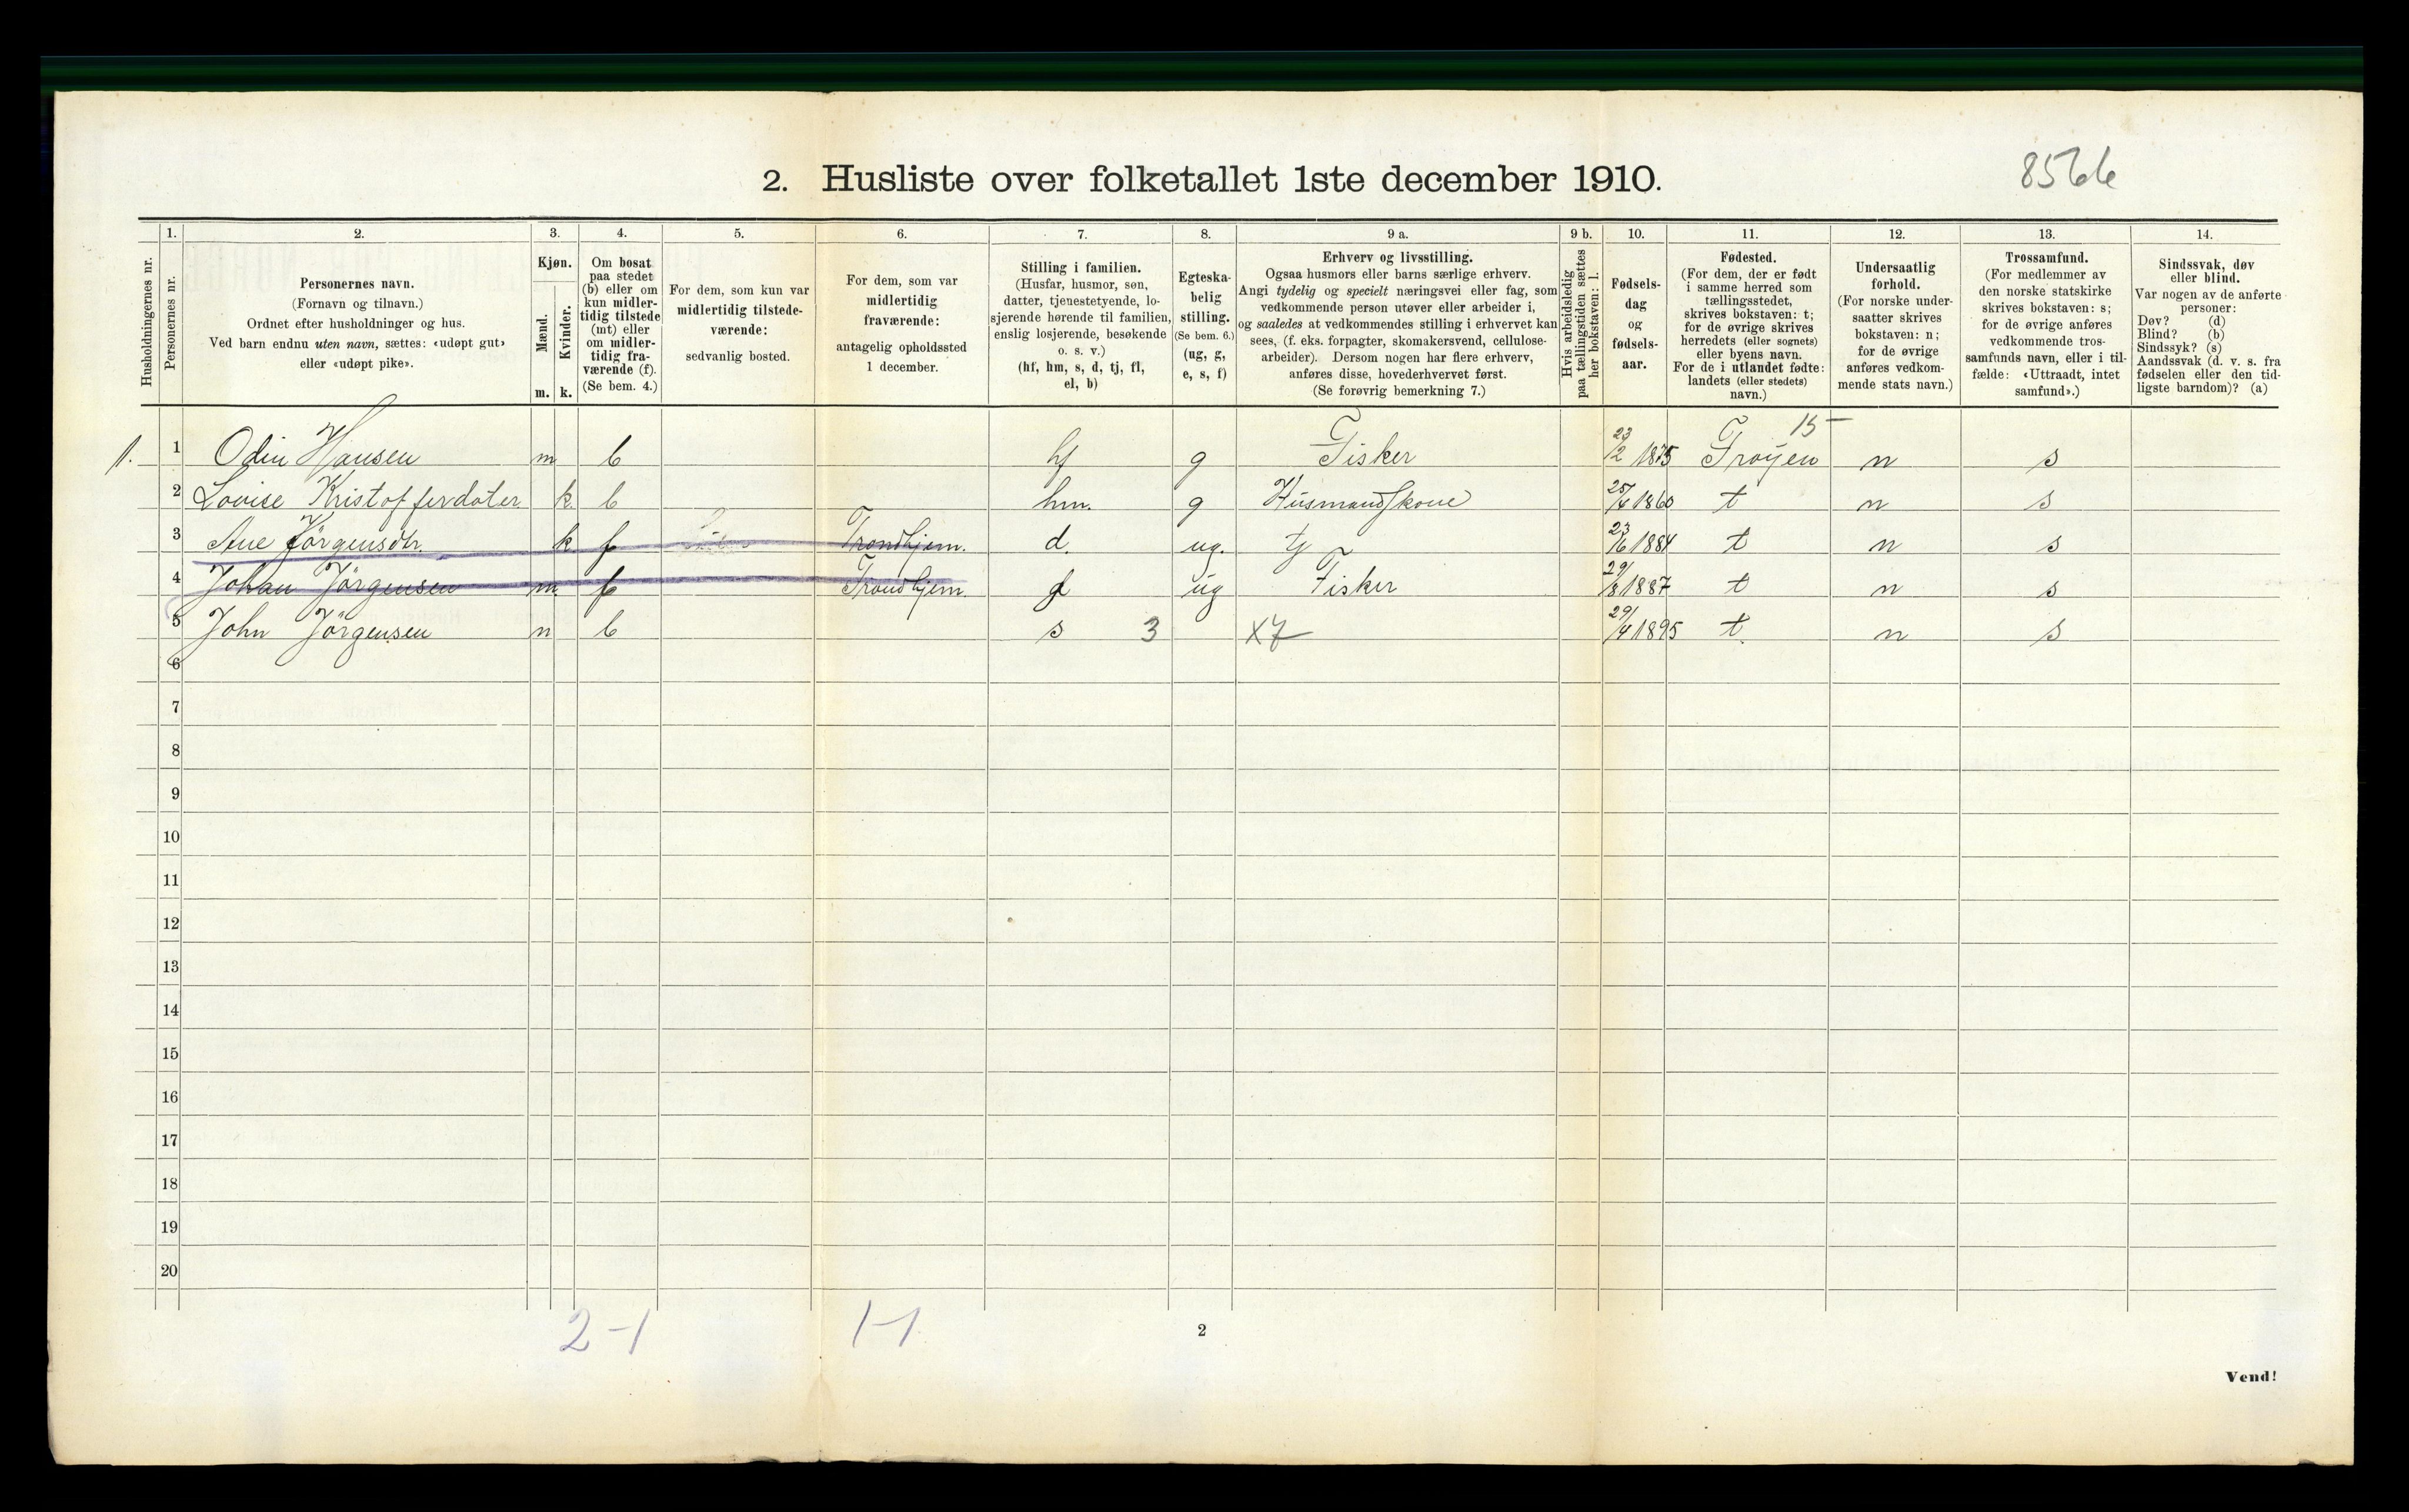 2. Husliste over folketallet 1ste december 1910.
8566
Husholdningernes nr.
1. Personernes nr.
2. Personernes navn. (Fornavn og tilnavn.) Ordnet efter husholdninger og hus. Ved barn endnu uten navn, sættes: «udøpt gut» eller «udøpt pike».
3. Kjøn. Mænd. m. Kvinder. k.
4. Om bosat paa stedet (b) eller om kun midlertidig tilstede (mt) eller om midlertidig fraværende (f). (Se bem. 4.)
5. For dem, som kun var midlertidig tilstedeværende: sedvanlig bosted.
6. For dem, som var midlertidig fraværende: antagelig opholdssted 1 december.
7. Stilling i familien. (Husfar, husmor, søn, datter, tjenestetyende, losjerende hørende til familien, enslig losjerende, besøkende o. s. v.) (hf, hm, s, d, tj, fl, el, b)
8. Egteskabelig stilling. (Se bem. 6.) (ug, g, e, s, f)
9 a. Erhverv og livsstilling. Ogsaa husmors eller barns særlige erhverv. Angi tydelig og specielt næringsvei eller fag, som vedkommende person utøver eller arbeider i, og saaledes at vedkommendes stilling i erhvervet kan sees, (f. eks. forpagter, skomakersvend, cellulosearbeider). Dersom nogen har flere erhverv, anføres disse, hovederhvervet først. (Se forøvrig bemerkning 7.)
9 b. Hvis arbeidsledig paa tællingstiden sættes her bokstaven: l.
10. Fødselsdag og fødselsaar.
11. Fødested. (For dem, der er født i samme herred som tællingsstedet, skrives bokstaven: t; for de øvrige skrives herredets (eller sognets) eller byens navn. For de i utlandet fødte: landets (eller stedets) navn.)
12. Undersaatlig forhold. (For norske undersaatter skrives bokstaven: n; for de øvrige anføres vedkommende stats navn.)
13. Trossamfund. (For medlemmer av den norske statskirke skrives bokstaven: s; for de øvrige anføres vedkommende trossamfunds navn, eller i tilfælde: «Uttraadt, intet samfund».)
14. Sindssvak, døv eller blind. Var nogen av de anførte personer: Døv? (d) Blind? (b) Sindssyk? (s) Aandssvak (d. v. s. fra fødselen eller den tidligste barndom)? (a)
15-
1. 1 Odin Hansen m b hf g Fisker 23/2 1875 Frøyen n s
2 Lovise Kristofferdater k. b hm. g Husmandskone 25/6 1860 t n s
3 Ane Jörgensdtr. k f Trondhjem. d. ug. tj 23/6 1884 t n s
4 Johan Jörgensen m f Trondhjem. ug Fisker 29/8 1887 t n s
5 John Jörgensen m b s 3 x7 29/4 1895 t. n s
6
7
8
9
10
11
12
13
14
15
16
17
18
19
20
2-1 1-1
2
Vend!